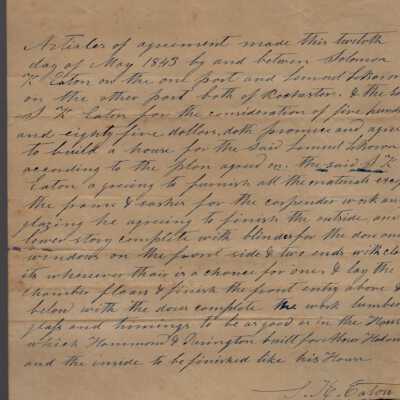 Articles of agreement made this twelvth
day of May 1843 by and between Solomon
K Eaton on the one part and Lemuel
on the other part both of Rochester. & the
S K Eaton for the consideration of five hund
and eighty five dollars, doth promise and agree
to build a house for the said Lemuel
according to the plan agreed on. the said S K
Eaton agreeing to furnish all the materials exce
the frame & sashes for the carpender work and
glazing he agreeing to finish the outside, and
lower story complete with blinds for the door and
windows on the front side & two ends with clo
its whereever thair is a chance for one & lay the
chamber floars & finish the front entry above &
below with the door complete the work lumber
glass and trimings to be as good as in the House
which Hammond & built for
and the inside to be finished like his House
S. K. Eaton